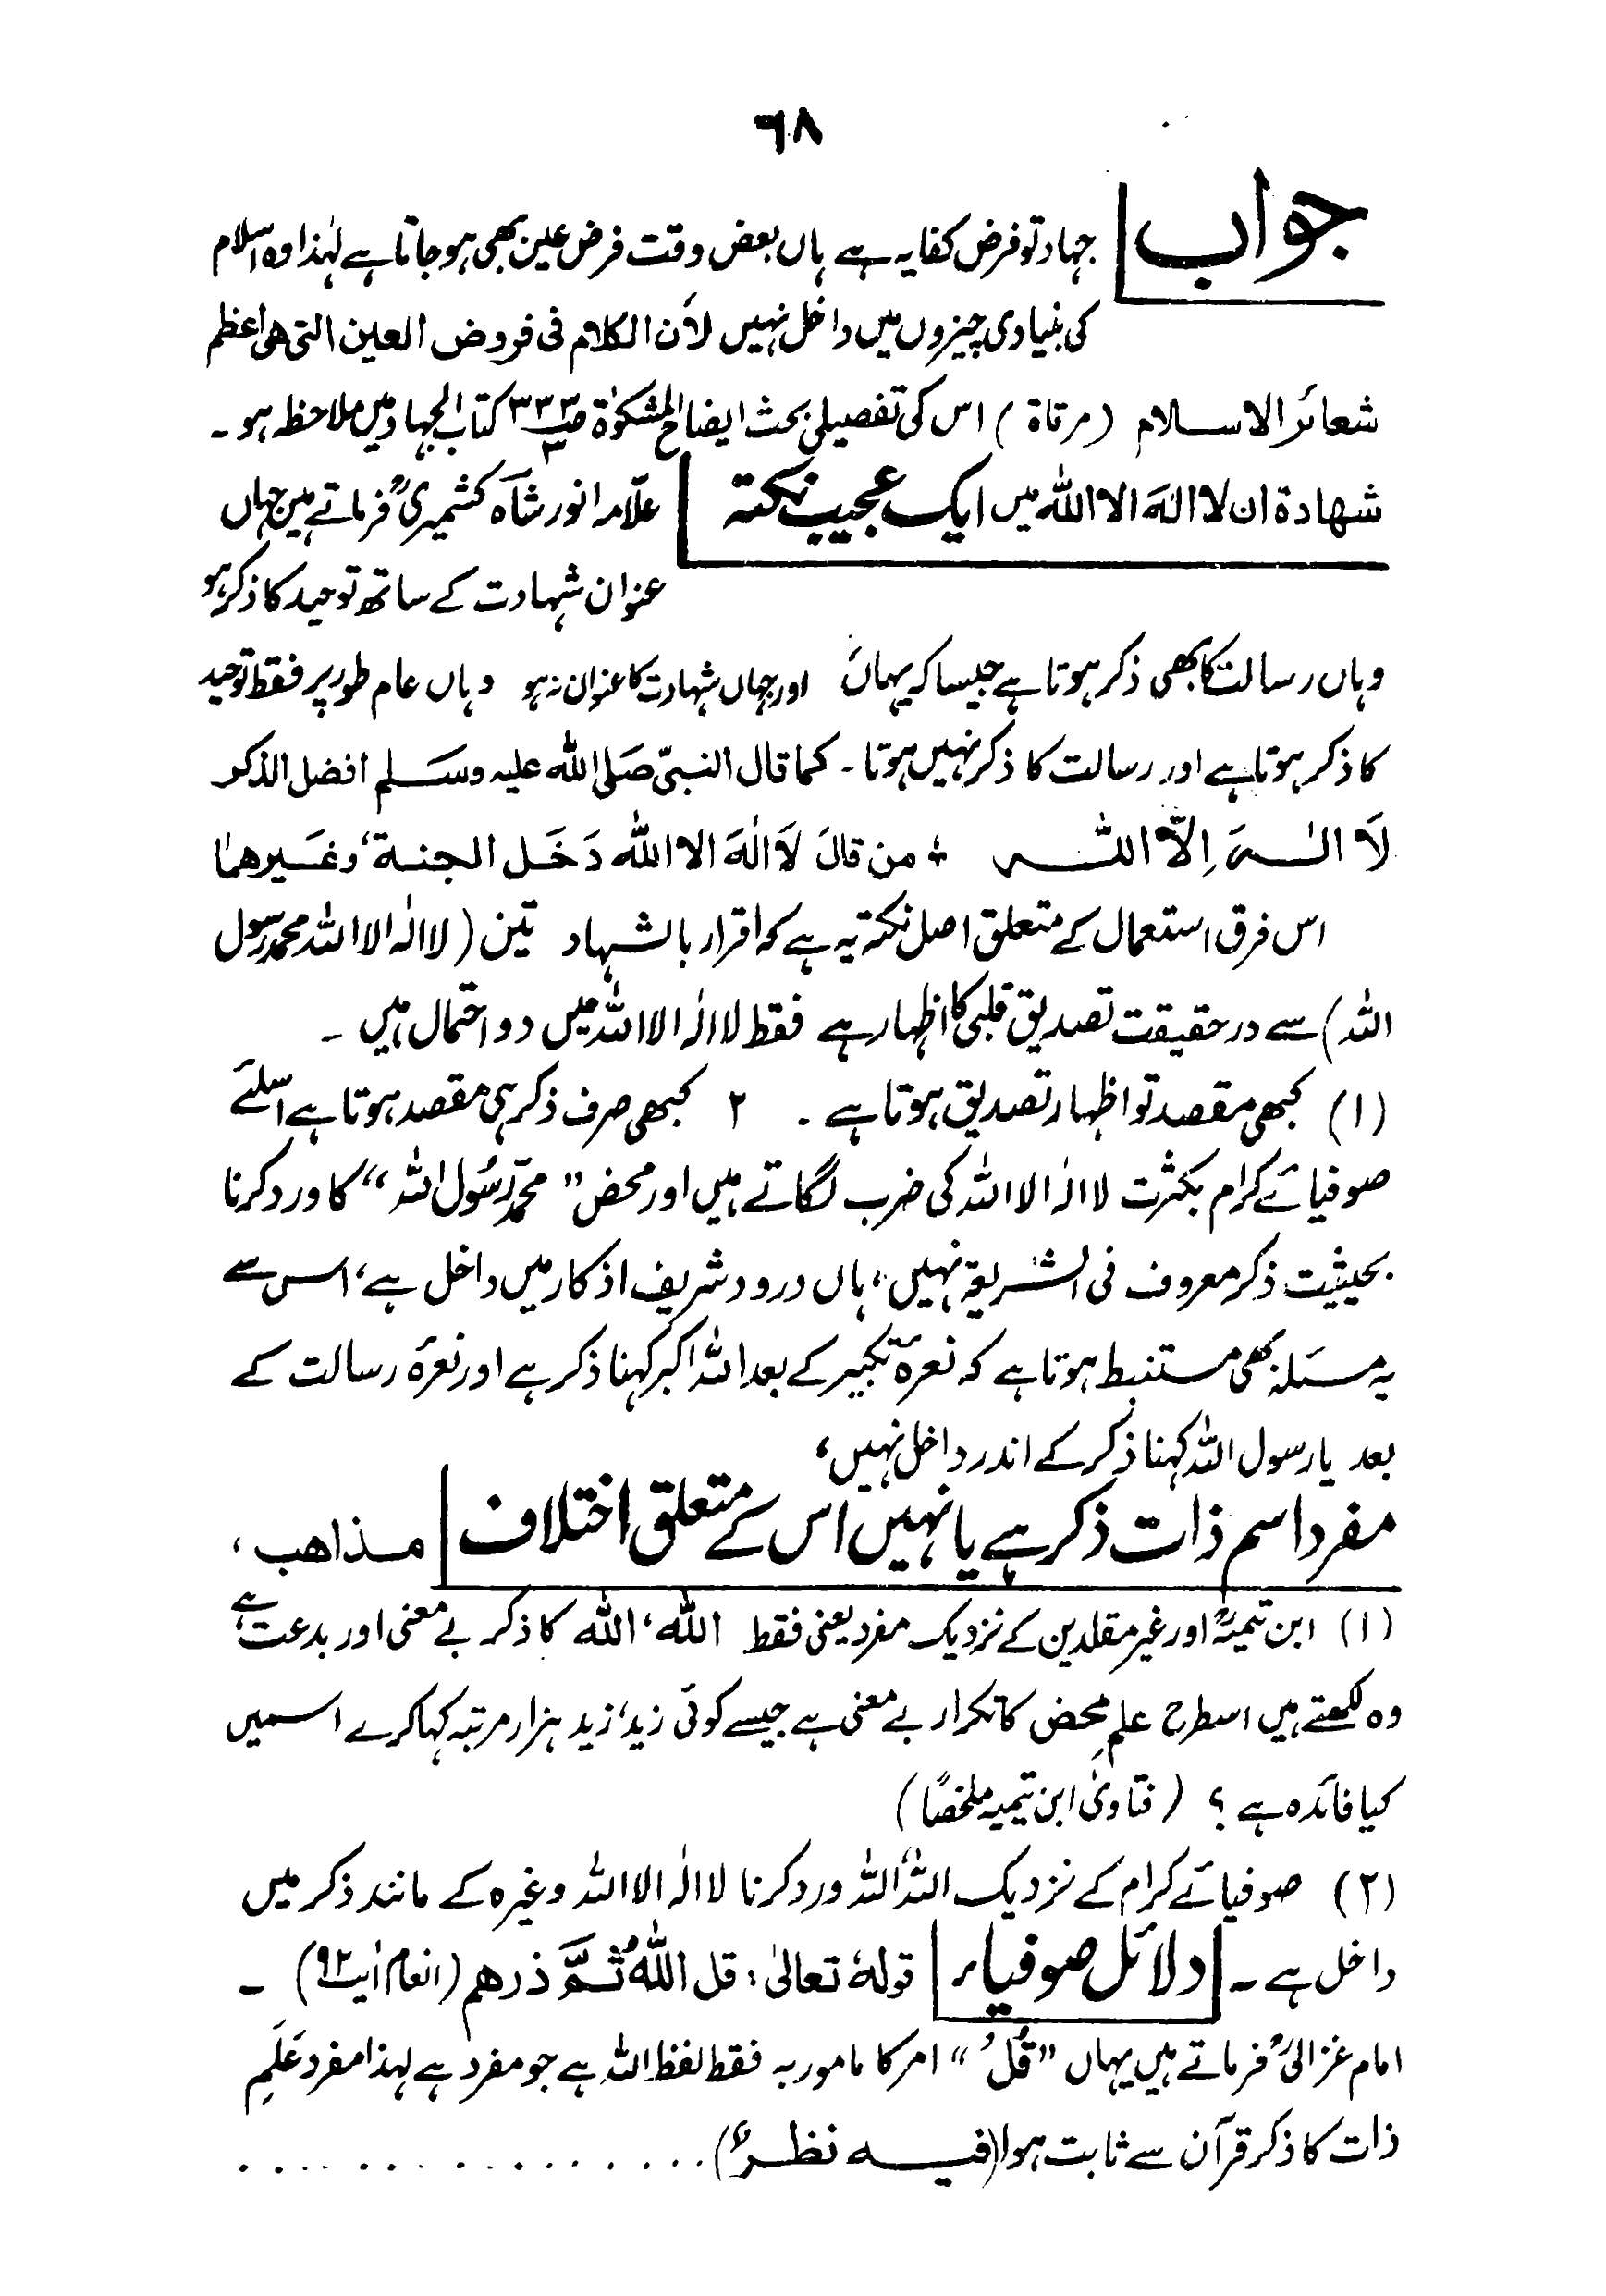 ٦٨
جواب جہاد تو فرض کفایہ ہے ہاں بعض وقت فرض عین بھی ہو جاتا ہے لہٰذا وہ اسلام
کی بنیادی چیزوں میں داخل نہیں لأن الکلام فی فروض العین التی هی اعظم
شعائر الاسلام (مرقاة) اس کی تفصیلی بحث ایضاح المشکوٰۃ کتاب الجہاد میں ملاحظہ ہو ۔
شهادة ان لا الٰهَ الا الله میں ایک عجیب نکتہ علّامہ انور شاہ کشمیریؒ فرماتے ہیں جہاں
عنوان شہادت کے ساتھ توحید کا ذکر ہو
وہاں رسالت کا بھی ذکر ہوتا ہے جیسا کہ یہاں اور جہاں شہادت کا عنوان نہ ہو وہاں عام طور پر فقط توحید
کا ذکر ہوتا ہے اور رسالت کا ذکر نہیں ہوتا ۔ کما قال النبیّ صَلی الله علیہ وسَلم افضل الذکر
لَا الٰہَ اِلّا اللہ ، من قالَ لَا الٰهَ الا الله دَخَل الجنة، وغَیرهما
اس فرق استعمال کے متعلق اصل نکتہ یہ ہے کہ اقرار بالشہاد تین (لا الٰہ الا اللہ محمد رسول
اللہ) سے در حقیقت تصدیق قلبی کا اظہار ہے فقط لا الٰہ الا اللہ میں دو احتمال ہیں ۔
(۱) کبھی مقصد تو اظہار تصدیق ہوتا ہے ۔ ۲ کبھی صرف ذکر ہی مقصد ہوتا ہے اسلئے
صوفیائے کرام بکثرت لا الٰہ الا اللہ کی ضرب لگاتے ہیں اور محض ”محمّد رّسُول اللہ“ کا ورد کرنا
بحیثیت ذکر معروف فی الشریعۃ نہیں، ہاں درود شریف اذکار میں داخل ہے، اس سے
یہ مسئلہ بھی مستنبط ہوتا ہے کہ نعرۂ تکبیر کے بعد اللہ اکبر کہنا ذکر ہے اور نعرۂ رسالت کے
بعد یا رسول اللہ کہنا ذکر کے اندر داخل نہیں،
مفرد اسم ذات ذکر ہے یا نہیں اس کے متعلق اختلاف مذاهب،
(۱) ابن تیمیہؒ اور غیر مقلدین کے نزدیک مفرد یعنی فقط الله، الله کا ذکر بے معنی اور بدعت ہے
وہ لکھتے ہیں اسطرح علمِ محض کا تکرار بے معنی ہے جیسے کوئی زید، زید ہزار مرتبہ کہا کرے اسمیں
کیا فائدہ ہے ؟ (فتاویٰ ابن تیمیہ ملخصًا)
(۲) صوفیائے کرام کے نزدیک اللہ، اللہ ورد کرنا لا الٰہ الا اللہ وغیرہ کے مانند ذکر میں
داخل ہے ۔ دلائل صوفیاء قولهٗ تعالیٰ : قل اللهُ ثُمَّ ذرهم (انعام اٰیت ۹۲) ۔
امام غزالیؒ فرماتے ہیں یہاں ”قُلْ“ امر کا مامور بہ فقط لفظ اللہ ہے جو مفرد ہے لہذا مفرد عَلَمِ
ذات کا ذکر قرآن سے ثابت ہوا (فیه نظرٌ) . . . . . . . . . . . . . . .